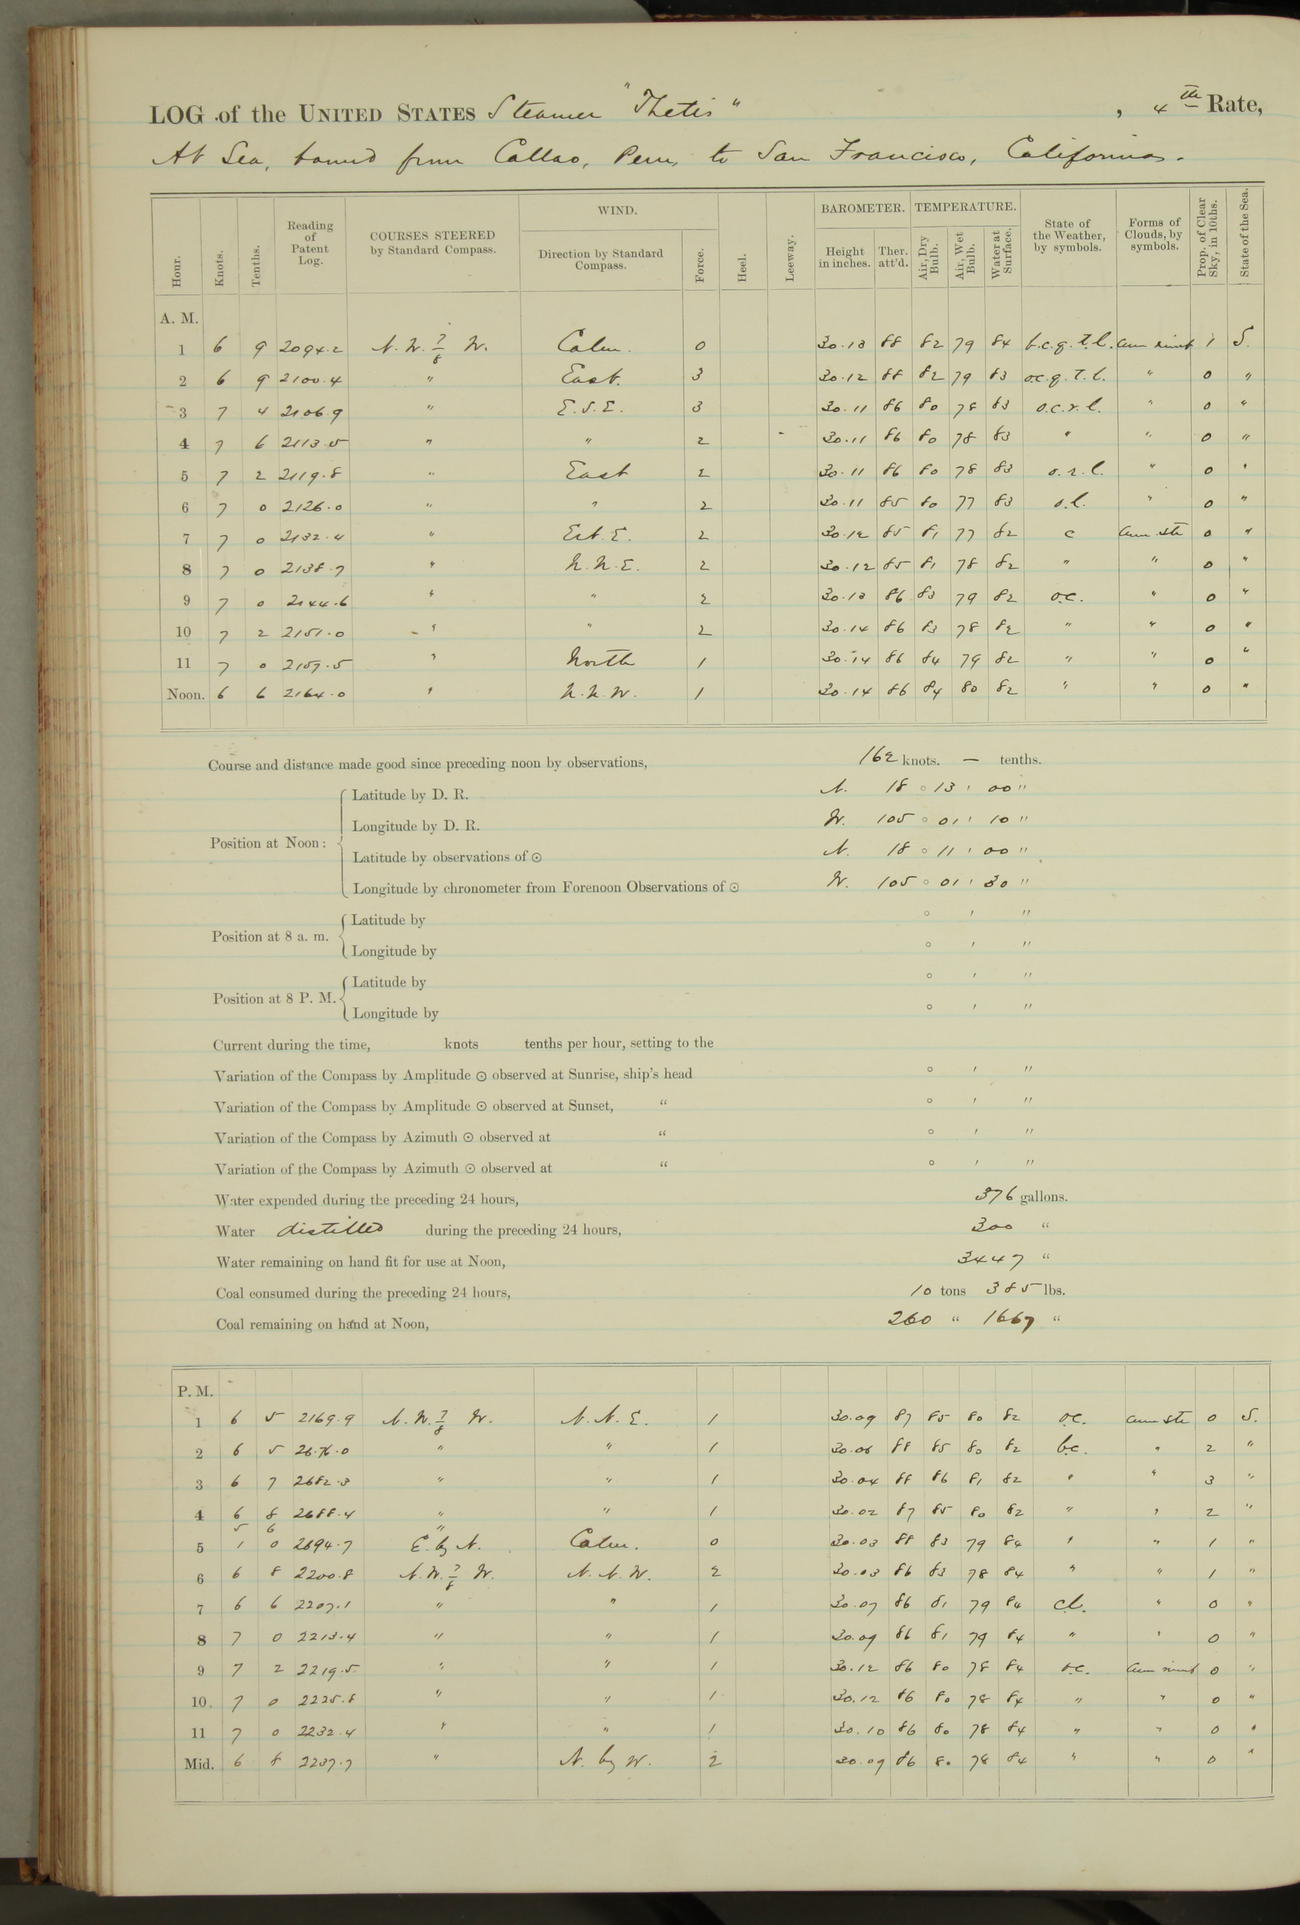 LOG of the UNITED STATES Steamer "Thetis", 4th Rate,
At Sea, bound from Callao, Peru, to San Francisco, California.
Hour. Knots. Tenths. Reading of Patent Log. COURSES STEERED by Standard Compass. WIND. Direction by Standard Compass. Force. Heel. Leeway. BAROMETER. Height in inches. Ther. att'd. TEMPERATURE. Air, Dry Bulb. Air, Wet Bulb. Water at Surface. State of the Weather, by symbols. Forms of Clouds, by symbols. Prop. of Clear Sky, in 10ths. State of the Sea.
A. M.
1 6 9 2094.2 N.W. 7/8 W. Calm. 0 30.13 88 82 79 84 b.c.q.t.l. Cum nimb 1 S.
2 6 9 2100.4 " East. 3 30.12 88 82 79 83 o.c.q.t.l. " 0 "
3 7 4 2106.9 " E.S.E. 3 30.11 86 80 78 83 o.c.r.l. " 0 "
4 7 6 2113.5 " " 2 30.11 86 80 78 83 " " 0 "
5 7 2 2119.8 " East 2 30.11 86 80 78 83 o.r.l. " 0 "
6 7 0 2126.0 " " 2 30.11 85 80 77 83 o.l. " 0 "
7 7 0 2132.4 " E.b.E. 2 30.12 85 81 77 82 c Cum str 0 "
8 7 0 2138.7 " N.N.E. 2 30.12 85 81 78 82 " " 0 "
9 7 0 2144.6 " " 2 30.13 86 83 79 82 o.c. " 0 "
10 7 2 2151.0 " " 2 30.14 86 83 78 82 " " 0 "
11 7 0 2157.5 " North 1 30.14 86 84 79 82 " " 0 "
Noon. 6 6 2164.0 " N.N.W. 1 30.14 86 84 80 82 " " 0 "
Course and distance made good since preceding noon by observations, 162 knots. — tenths.
Position at Noon:
Latitude by D. R. N. 18 ° 13 ' 00 "
Longitude by D. R. W. 105 ° 01 ' 10 "
Latitude by observations of ⊙ N. 18 ° 11 ' 00 "
Longitude by chronometer from Forenoon Observations of ⊙ W. 105 ° 01 ' 30 "
Position at 8 a. m.
Latitude by ° ' "
Longitude by ° ' "
Position at 8 P. M.
Latitude by ° ' "
Longitude by ° ' "
Current during the time, knots tenths per hour, setting to the
Variation of the Compass by Amplitude ⊙ observed at Sunrise, ship's head ° ' "
Variation of the Compass by Amplitude ⊙ observed at Sunset, " ° ' "
Variation of the Compass by Azimuth ⊙ observed at " ° ' "
Variation of the Compass by Azimuth ⊙ observed at " ° ' "
Water expended during the preceding 24 hours, 376 gallons.
Water distilled during the preceding 24 hours, 300 "
Water remaining on hand fit for use at Noon, 3447 "
Coal consumed during the preceding 24 hours, 10 tons 385 lbs.
Coal remaining on hand at Noon, 260 " 1667 "
P. M.
1 6 5 2169.9 N.W. 7/8 W. N.N.E. 1 30.09 87 85 80 82 o.c. Cum str 0 S.
2 6 5 26.76.0 " " 1 30.06 88 85 80 82 b.c. " 2 "
3 6 7 2682.3 " " 1 30.04 88 86 81 82 " " 3 "
4 6 8 2688.4 " " 1 30.02 87 85 80 82 " " 2 "
5 6 "
5 1 0 2694.7 E. by N. Calm. 0 30.03 88 83 79 84 " " 1 "
6 6 8 2200.8 N.W. 7/8 W. N.N.W. 2 30.03 86 83 78 84 " " 1 "
7 6 6 2207.1 " " 1 30.07 86 81 79 84 c.l. " 0 "
8 7 0 2213.4 " " 1 30.09 86 81 79 84 " " 0 "
9 7 2 2219.5 " " 1 30.12 86 80 78 84 o.c. Cum nimb 0 "
10 7 0 2225.8 " " 1 30.12 86 80 78 84 " " 0 "
11 7 0 2232.4 " " 1 30.10 86 80 78 84 " " 0 "
Mid. 6 8 2237.7 " N. by W. 2 30.09 86 80 78 84 " " 0 "